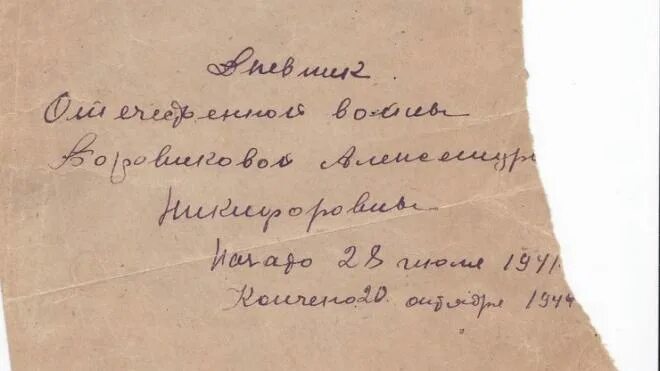 Дневник
Отечественной войны
Боровиковой Александры
Никифоровны
Начато 28 июля 1941
Кончено 20 октября 1944